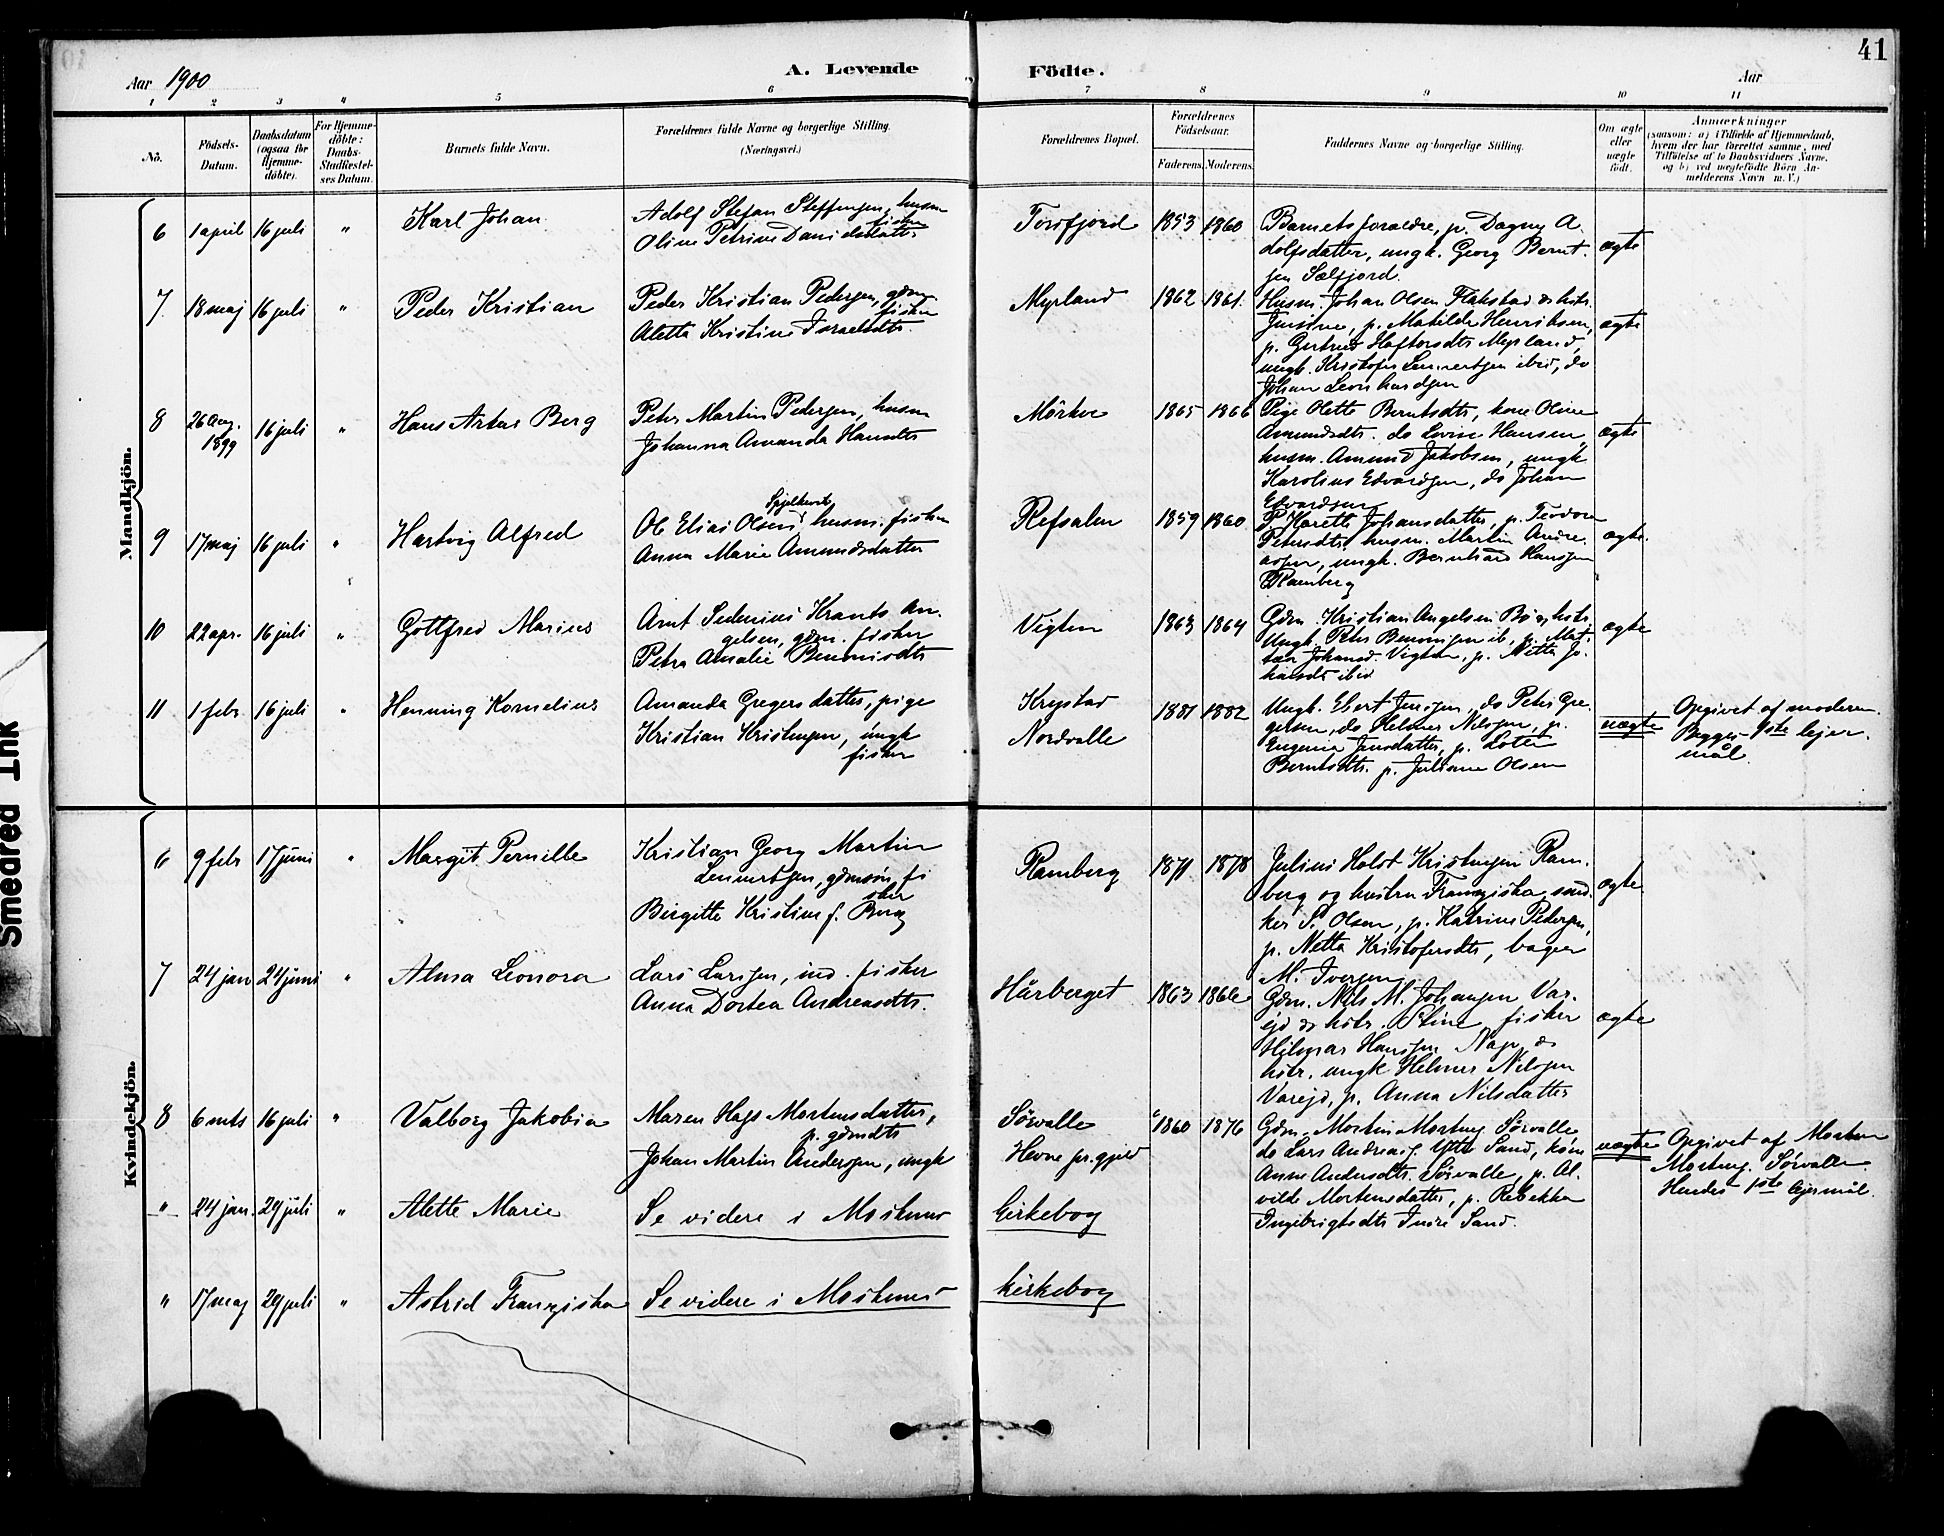 41
Aar 1900
A. Levende
Födte.
Aar
1 2 3 4 5 6 7 8 9 10 11
Nö.
Födsels-
Datum.
Daabsdatum
(ogsaa for
Hjemme-
döbte).
For Hjemme-
döbte:
Daabs-
Stadfæstel-
ses Datum.
Barnets fulde Navn.
Forældrenes fulde Navne og borgerlige Stilling.
(Næringsvei.)
Forældrenes Bopæl.
Forældrenes
Födselsaar.
Faderens. Moderens.
Faddernes Navne og borgerlige Stilling.
Om ægte
eller
uægte
födt.
Anmærkninger
(saasom: a) i Tilfælde af Hjemmedaab,
hvem der har forrettet samme, med
Tilföielse af to Daabsvidners Navne,
og b) ved uægtefödte Börn An-
melderens Navn m. V.)
Mandkjön.
6 1 april 16 juli " Karl Johan
Adolf Stefan Steffensen, husm
fisker
Oline Petrine Danielsdatter
Torsfjord 1853 1860
Barnets forældre, p. Dagny A-
dolfsdatter, ungk. Georg Bernt-
sen Selfjord.
ægte
7 18 maj 16 juli " Peder Kristian
Peder Kristian Pedersen, gdm.
fisker
Aletta Kristine Israelsdtr
Myrland 1862 1861.
Husm. Johan Olsen Flakstad & hstr.
Jensine, p. Matilde Henriksen,
p. Gertrud Haftorsdtr Myrland,
ungk. Kristofer Lennertsen ibid, do
Johan Leonhardsen
ægte
8 26 Aug. 1899 16 juli " Hans Artur Berg
Peter Martin Pedersen, husm
Johanna Amanda Hansdtr
Mörkve 1865 1866
Pige Olette Berntsdtr, kone Oline
Amundsdtr. do Lovise Hansen,
husm. Amund Jakobsen, ungk
Karolius Edvardsen, do Johan
Edvardsen
ægte
9 17 maj 16 juli " Hartvig Alfred
Spjelkevik
Ole Elias Olsen husm. fisker
Anna Marie Amundsdatter
Refsalen 1859 1860
P. Karette Johansdatter, p. Teodora
Petersdtr. husm. Martin Andre-
assen, ungk. Bernhard Hanssen
Ramberg
ægte.
10 22 apr. 16 juli " Gottfred Marius
Arnt Sedenius Krants An-
gelsen, gdm. fisker
Petra Amalie Benonisdtr
Vigten 1863 1864
Gdm. Kristian Angelsen Bö & hstr.
Ungk. Peter Benonisen ib, p. Mat-
tea Johansd. Vigten, p. Netta Jo-
hansdtr ibid
ægte
11 1 febr 16 juli " Henning Kornelius
Amanda Gregersdatter, pige
Kristian Kristensen, ungk
fisker
Krystad
Nordvalle
1881 1882
Ungk. Ebert Jensen, do Peter Gre-
gersen, do Helmer Nilssen, p.
Eugenie Jensdatter, p. Lotte
Berntsdtr. p. Juliane Olsen
uægte
Opgivet af moderen.
Begges 1ste lejer-
mål.
Kvindekjön.
6 9 febr 17 juni " Margit Pernille
Kristian Georg Martin
Lennertsen, gdmsön, fi
sker
Birgitte Kristine f. Berg
Ramberg 1871 1878
Julius Holst Kristensen Ram-
berg og hustru Franziska, snd-
ker S. Olsen, p. Katrine Pedersen,
p. Netta Kristofersdtr, bager
M. Iversen
ægte
7 24 jan 24 juni " Alma Leonora
Lars Larsen, ind. fisker
Anna Dortea Andreasdtr.
Hårberget 1863 1866
Gdm. Nils M. Johansen Var-
ejd & hstr. Stine, fisker
Hilmar Hanssen Nap &
hstr. ungk Helmer Nilssen
Varejd, p. Anna Nilsdatter
ægte
8 6 mts 16 juli " Valborg Jakobia
Maren Hags Mortensdatter,
p. gdmdtr
Johan Martin Andersen, ungk
Sörvalle
Hevne pr.gjeld
1860 1876
Gdm. Mortin Mortens. Sörvalle
do Lars Andreas. Ytre Sand, kone
Anne Andersdtr. Sörvalle, p. Al-
vilde Mortensdatter, p. Rebekka
Ingebrigtsdtr Indre Sand.
uægte
Opgivet af Morten
Mortens. Sörvalle.
Hendes 1ste lejermål.
" 24 jan. 29 juli " Alette Marie
Se videre i Moskenes kirkebog
" 17 maj 29 juli " Astrid Franziska
Se videre i Moskenes kirkebog
Smeared Ink